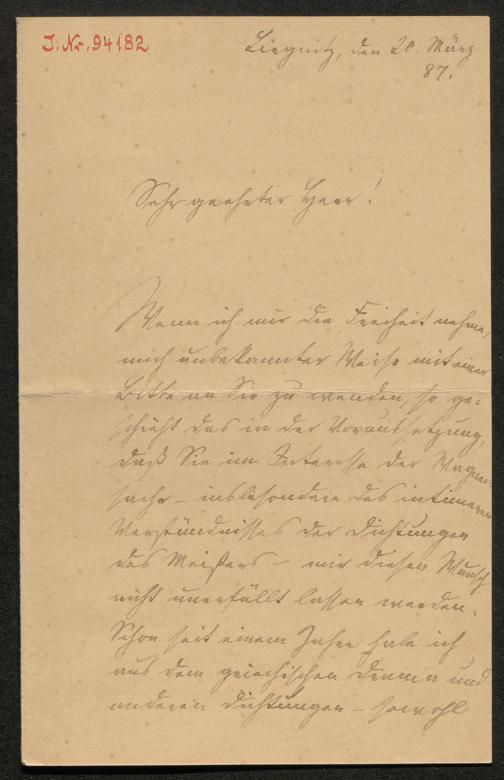 J. Nr. 94182
Liegnitz, den 20. März
87.
Sehr geehrter Herr!
Wenn ich mir die Freiheit nehme,
mich unbekannter Weise mit einer
Bitte an Sie zu wenden, so ge-
schieht das in der Voraussetzung,
daß Sie im Interesse der Wagner-
sache – insbesondere des intimeren
Verständnisses der Dichtungen
des Meisters – mir diesen Wunsch
nicht unerfüllt lassen werden.
Schon seit einem Jahre habe ich
aus dem griechischen Drama und
anderen Dichtungen – sowohl